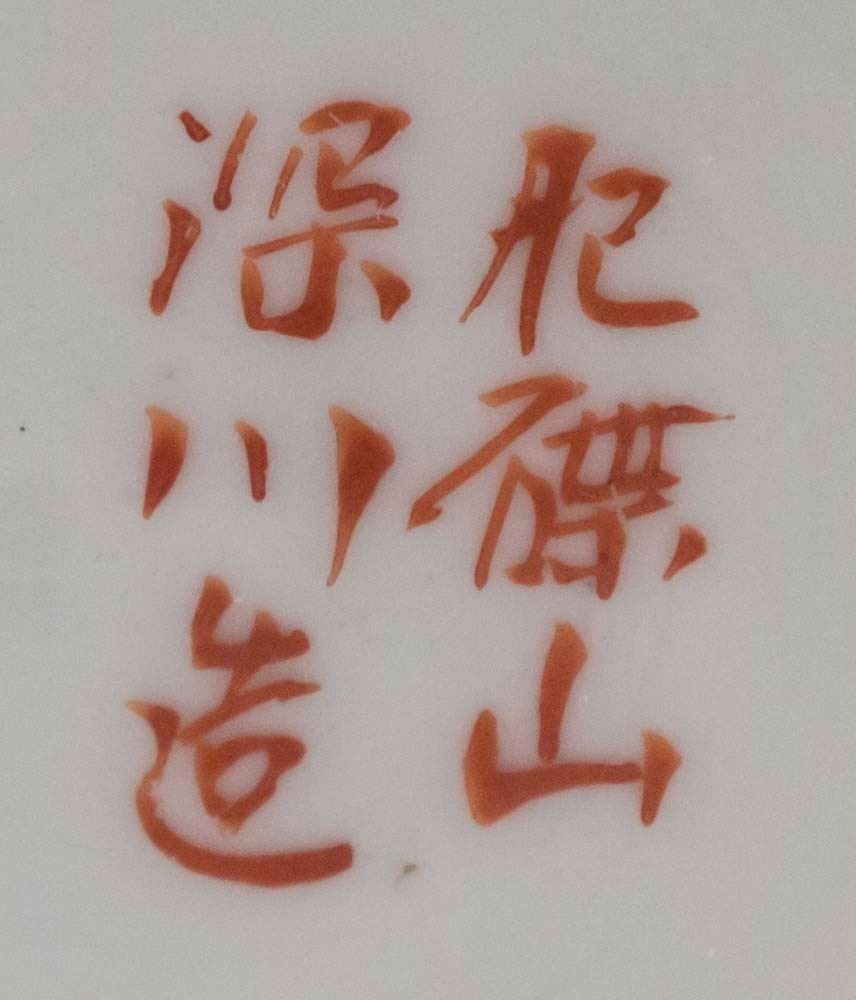 肥碟山
深川造